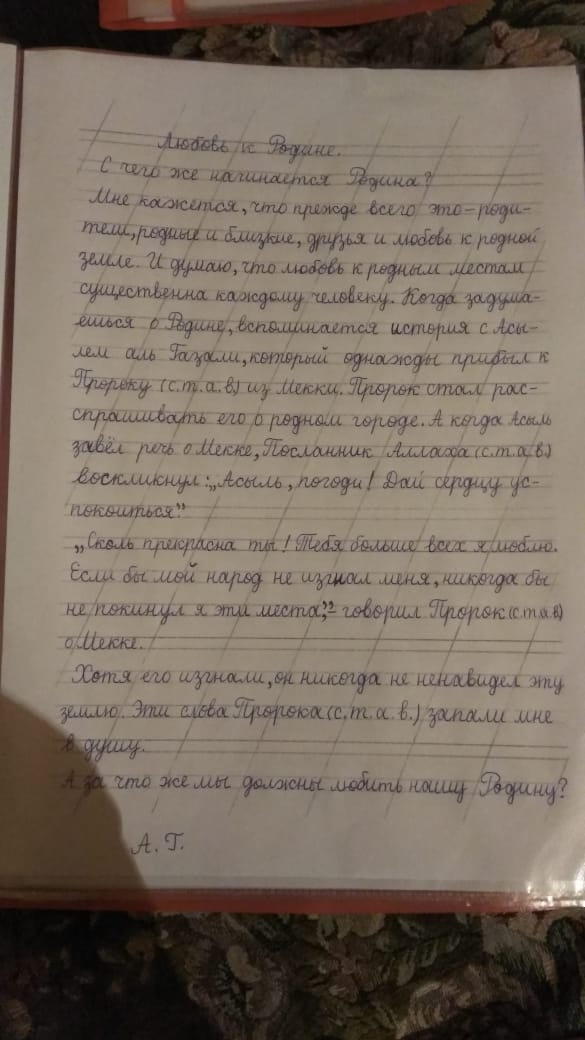 Любовь к Родине.
С чего же начинается Родина?
Мне кажется, что прежде всего это – роди-
тели, родные и близкие, друзья и любовь к родной
земле. И думаю, что любовь к родным местам
существенна каждому человеку. Когда задума-
ешься о Родине, вспоминается история с Асы-
лем аль Газали, который однажды прибыл к
Пророку (с.т.а.в) из Мекки. Пророк стал рас-
спрашивать его о родном городе. А когда Асыль
завёл речь о Мекке, Посланник Аллаха (с.т.а.в.)
воскликнул: „Асыль, погоди! Дай сердцу ус-
покоиться”
„Сколь прекрасна ты! Тебя больше всех я люблю.
Если бы мой народ не изгнал меня, никогда бы
не покинул я эти места”, – говорил Пророк (с.т.а.в)
о Мекке.
Хотя его изгнали, он никогда не ненавидел эту
землю. Эти слова Пророка (с.т.а.в.) запали мне
в душу.
А за что же мы должны любить нашу Родину?
А. Г.